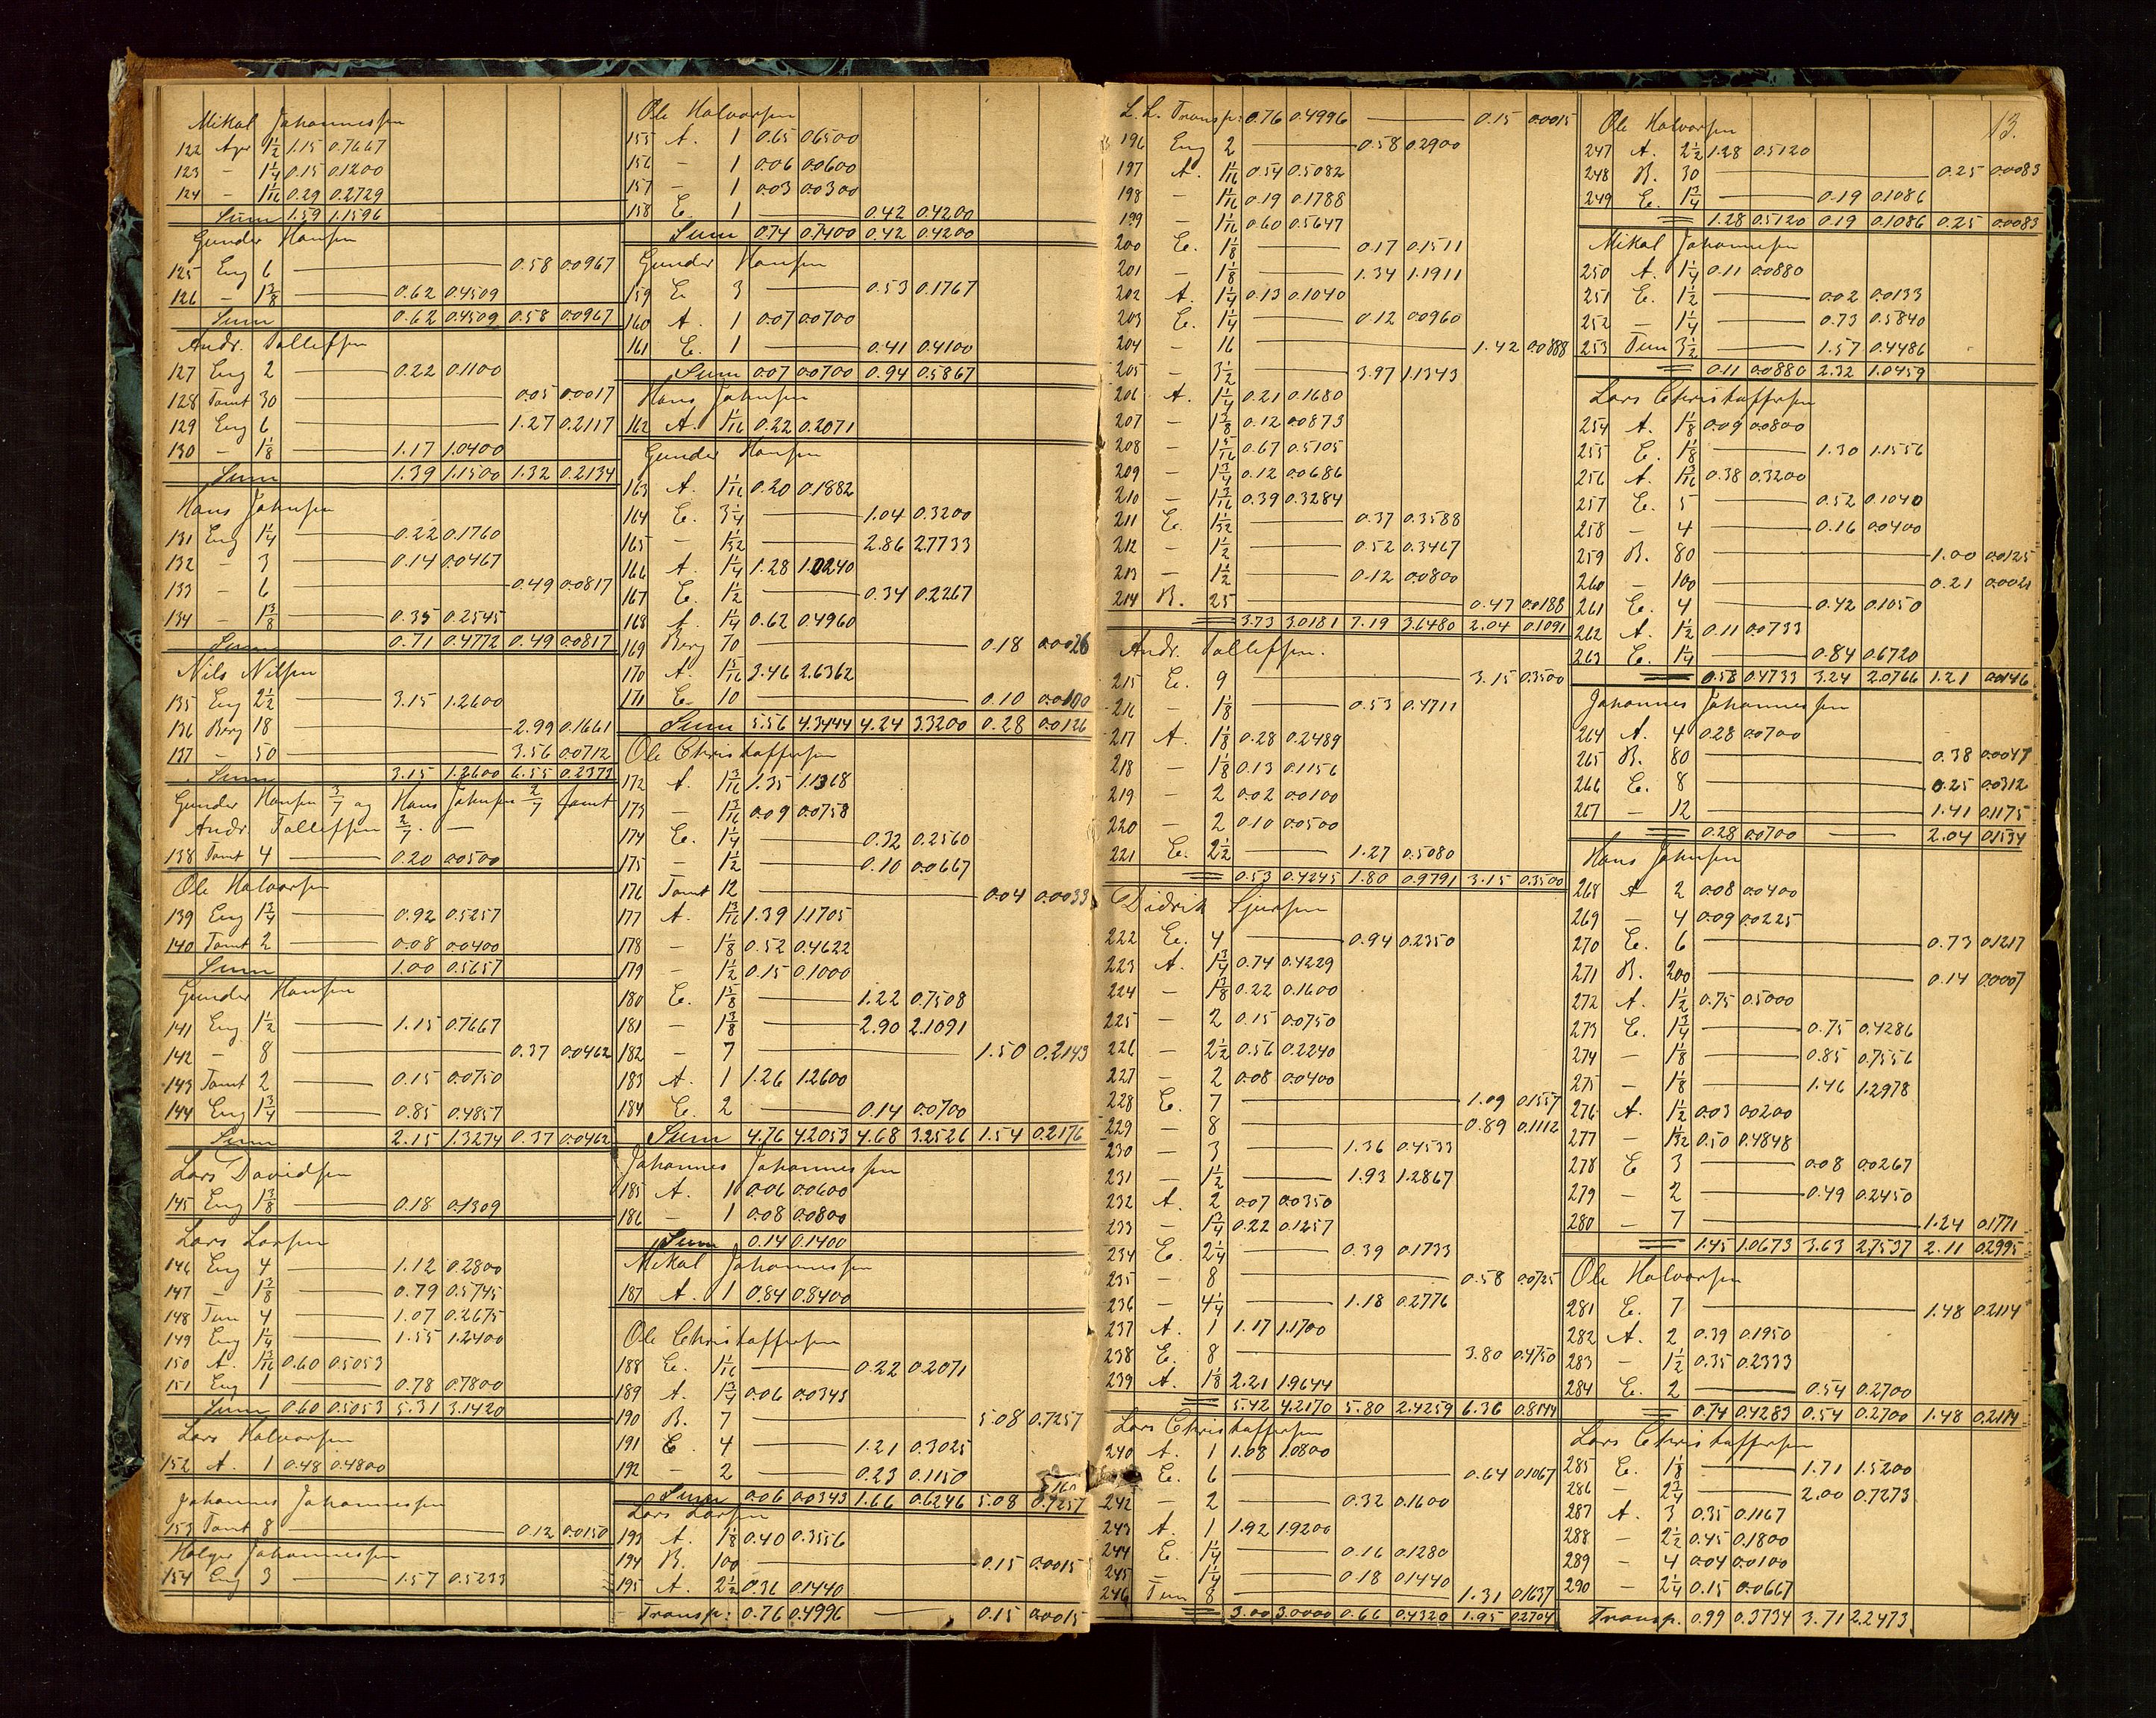 Mikal Johannessen
122 Agr 1½ 1.15 0.7667
123 - 1¼ 0.15 0.1200
124 - 1 1/16 0.29 0.2729
Sum 1.59 1.1596
Gunder Hansen
125 Eng 6 0.58 0.0967
126 - 1⅜ 0.62 0.4509
Sum 0.62 0.4509 0.58 0.0967
Andr. Tollefsen
127 Eng 2 0.22 0.1100
128 Tomt 30 0.05 0.0017
129 Eng 6 1.27 0.2117
130 - 1⅛ 1.17 1.0400
Sum 1.39 1.1500 1.32 0.2134
Hans Johnsen
131 Eng 1¼ 0.22 0.1760
132 - 3 0.14 0.0467
133 - 6 0.49 0.0817
134 - 1⅜ 0.35 0.2545
Sum 0.71 0.4772 0.49 0.0817
Nils Nilsen
135 Eng 2½ 3.15 1.2600
136 Berg 18 2.99 0.1661
137 - 50 3.56 0.0712
Sum 3.15 1.2600 6.55 0.2373
Gunder Hansen 3/7 og Hans Johnsen 2/7 samt
Andr. Tollefsen 2/7. —
138 Tomt 4 0.20 0.0500
Ole Halvorsen
139 Eng 1¾ 0.92 0.5257
140 Tomt 2 0.08 0.0400
Sum 1.00 0.5657
Gunder Hansen
141 Eng 1½ 1.15 0.7667
142 - 8 0.37 0.0462
143 Tomt 2 0.15 0.0750
144 Eng 1¾ 0.85 0.4857
Sum 2.15 1.3274 0.37 0.0462
Lars Davidsen
145 Eng 1⅜ 0.18 0.1309
Lars Larsen
146 Eng 4 1.12 0.2800
147 - 1⅜ 0.79 0.5745
148 Tun 4 1.07 0.2675
149 Eng 1¼ 1.55 1.2400
150 A. 1 3/16 0.60 0.5053
151 Eng 1 0.78 0.7800
Sum 0.60 0.5053 5.31 3.1420
Lars Halvorsen
152 A. 1 0.48 0.4800
Johannes Johannessen
153 Tomt 8 0.12 0.0150
Holger Johannessen
154 Eng 3 1.57 0.5233
Ole Halvorsen
155 A. 1 0.65 0.6500
156 - 1 0.06 0.0600
157 - 1 0.03 0.0300
158 E. 1 0.42 0.4200
Sum 0.74 0.7400 0.42 0.4200
Gunder Hansen
159 E. 3 0.53 0.1767
160 A. 1 0.07 0.0700
161 E. 1 0.41 0.4100
Sum 0.07 0.0700 0.94 0.5867
Hans Johnsen
162 A. 1 1/16 0.22 0.2071
Gunder Hansen
163 A. 1 1/16 0.20 0.1882
164 E. 3¼ 1.04 0.3200
165 - 1 1/32 2.86 2.7733
166 A. 1¼ 1.28 1.0240
167 E. 1½ 0.34 0.2267
168 A. 1¼ 0.62 0.4960
169 Berg 70 0.18 0.0026
170 A. 1 5/16 3.46 2.6362
171 E. 10 0.10 0.0100
Sum 5.56 4.3444 4.24 3.3200 0.28 0.0126
Ole Christoffersen
172 A. 1 3/16 1.35 1.1368
173 - 1 3/16 0.09 0.0758
174 E. 1¼ 0.32 0.2560
175 - 1½ 0.10 0.0667
176 Tomt 12 0.04 0.0033
177 A. 1 3/16 1.39 1.1705
178 - 1⅛ 0.52 0.4622
179 - 1½ 0.15 0.1000
180 E. 1⅝ 1.22 0.7508
181 - 1⅜ 2.90 2.1091
182 - 7 1.50 0.2143
183 A. 1 1.26 1.2600
184 E. 2 0.14 0.0700
Sum 4.76 4.2053 4.68 3.2526 1.54 0.2176
Johannes Johannessen
185 A. 1 0.06 0.0600
186 - 1 0.08 0.0800
Sum 0.14 0.1400
Mikal Johannessen
187 A. 1 0.84 0.8400
Ole Christoffersen
188 E. 1 1/16 0.22 0.2071
189 A. 1¾ 0.06 0.0343
190 B. 7 5.08 0.7257
191 E. 4 1.21 0.3025
192 - 2 0.23 0.1150
Sum 0.06 0.0343 1.66 0.6246 5.08 0.7257
Lars Larsen
193 A. 1⅛ 0.40 0.3556
194 B. 100 0.15 0.0015
195 A. 2½ 0.36 0.1440
Transp: 0.76 0.4996 — 0.15 0.0015
L. L. Transp: 0.76 0.4996 — 0.15 0.0015
196 Eng 2 0.58 0.2900
197 A. 1 1/16 0.54 0.5082
198 - 1 1/16 0.19 0.1788
199 - 1 1/16 0.60 0.5647
200 E. 1⅛ 0.17 0.1511
201 - 1⅛ 1.34 1.1911
202 A. 1¼ 0.13 0.1040
203 E. 1¼ 0.12 0.0960
204 - 16 1.42 0.0888
205 - 3½ 3.97 1.1343
206 A. 1¼ 0.21 0.1680
207 - 1⅜ 0.12 0.0873
208 - 1 5/16 0.67 0.5105
209 - 1¾ 0.12 0.0686
210 - 1 3/16 0.39 0.3284
211 E. 1 1/32 0.37 0.3588
212 - 1½ 0.52 0.3467
213 - 1½ 0.12 0.0800
214 B. 25 0.47 0.0188
3.73 3.0181 7.19 3.6480 2.04 0.1091
Andr. Tollefsen.
215 E. 9 3.15 0.3500
216 - 1⅛ 0.53 0.4711
217 A. 1⅛ 0.28 0.2489
218 - 1⅛ 0.13 0.1156
219 - 2 0.02 0.0100
220 - 2 0.10 0.0500
221 E. 2½ 1.27 0.5080
0.53 0.4245 1.80 0.9791 3.15 0.3500
Didrik Sjursen
222 E. 4 0.94 0.2350
223 A. 1¾ 0.74 0.4229
224 - 1⅜ 0.22 0.1600
225 - 2 0.15 0.0750
226 - 2½ 0.56 0.2240
227 - 2 0.08 0.0400
228 E. 7 1.09 0.1557
229 - 8 0.89 0.1112
230 - 3 1.36 0.4533
231 - 1½ 1.93 1.2867
232 A. 2 0.07 0.0350
233 - 1¾ 0.22 0.1257
234 E. 2¼ 0.39 0.1733
235 - 8 0.58 0.0725
236 - 4¼ 1.18 0.2776
237 A. 1 1.17 1.1700
238 E. 8 3.80 0.4750
239 A. 1⅛ 2.21 1.9644
5.42 4.2170 5.80 2.4259 6.36 0.8144
Lars Christoffersen
240 A. 1 1.08 1.0800
E. 6 0.64 0.1067
242 - 2 0.32 0.1600
243 A. 1 1.92 1.9200
244 E. 1¼ 0.16 0.1280
245 - 1¼ 0.18 0.1440
246 Tun 8 1.31 0.1637
3.00 3.0000 0.66 0.4320 1.95 0.2704
13.
Ole Halvorsen
247 A. 2½ 1.28 0.5120
248 B. 30 0.25 0.0083
249 E. 1¾ 0.19 0.1086
1.28 0.5120 0.19 0.1086 0.25 0.0083
Mikal Johannesen
250 A. 1¼ 0.11 0.0880
251 E. 1½ 0.02 0.0133
252 - 1¼ 0.73 0.5840
253 Tun 3½ 1.57 0.4486
0.11 0.0880 2.32 1.0459
Lars Christoffersen
254 A. 1⅛ 0.09 0.0800
255 E. 1⅛ 1.30 1.1556
256 A. 1 3/16 0.38 0.3200
257 E. 5 0.52 0.1040
258 - 4 0.16 0.0400
259 B. 80 1.00 0.0125
260 - 100 0.21 0.0021
261 E. 4 0.42 0.1050
262 A. 1½ 0.11 0.0733
263 E. 1¼ 0.84 0.6720
0.58 0.4733 3.24 2.0766 1.21 0.0146
Johannes Johannessen
264 A. 4 0.28 0.0700
265 B. 80 0.38 0.0047
266 E. 8 0.25 0.0312
267 - 12 1.41 0.1175
0.28 0.0700 — 2.04 0.1534
Hans Johnsen
268 A 2 0.08 0.0400
269 - 4 0.09 0.0225
270 E. 6 0.73 0.1217
271 B. 200 0.14 0.0007
272 A. 1½ 0.75 0.5000
273 E. 1¾ 0.75 0.4286
274 - 1⅛ 0.85 0.7556
275 - 1⅛ 1.46 1.2978
276 A. 1½ 0.03 0.0200
277 - 1 1/32 0.50 0.4848
278 E 3 0.08 0.0267
279 - 2 0.49 0.2450
280 - 7 1.24 0.1771
1.45 1.0673 3.63 2.7537 2.11 0.2995
Ole Halvorsen
281 E. 7 1.48 0.2114
282 A. 2 0.39 0.1950
283 - 1½ 0.35 0.2333
284 E. 2 0.54 0.2700
0.74 0.4283 0.54 0.2700 1.48 0.2114
Lars Christoffersen
285 E. 1⅛ 1.71 1.5200
286 - 2¾ 2.00 0.7273
287 A. 3 0.35 0.1167
288 - 2½ 0.45 0.1800
289 - 4 0.04 0.0100
290 - 2¼ 0.15 0.0667
Transp. 0.99 0.3734 3.71 2.2473